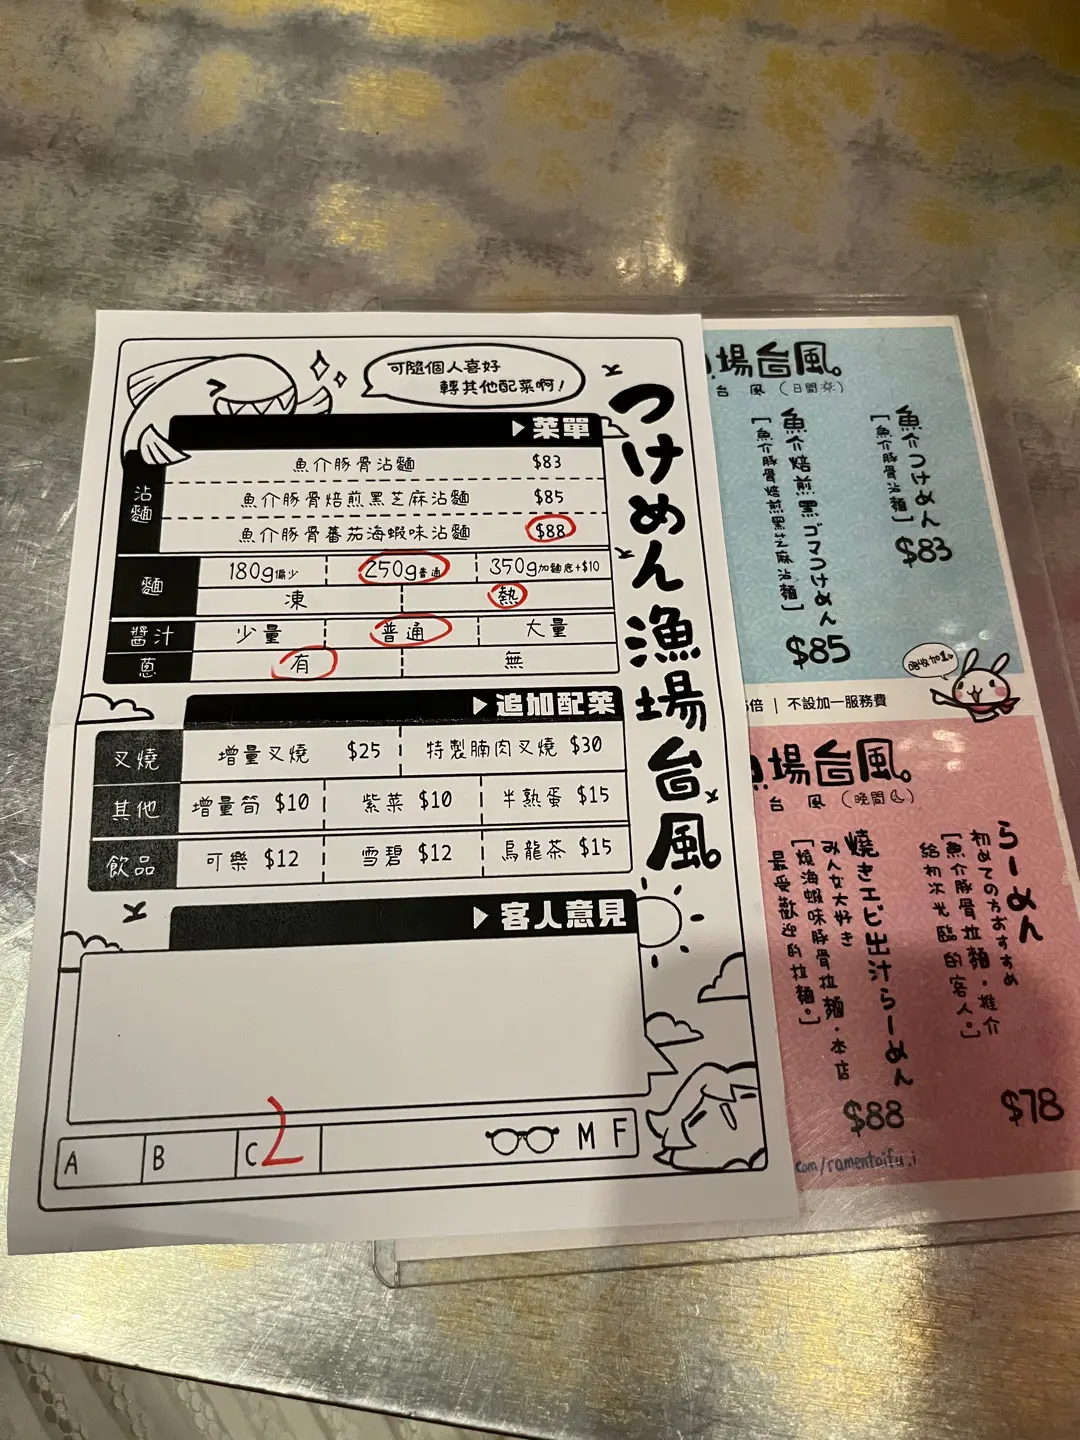 可隨個人喜好
轉其他配菜啊！
つけめん漁場台風。
▶菜單
沾麵
魚介豚骨沾麵 $83
魚介豚骨焙煎黑芝麻沾麵 $85
魚介豚骨蕃茄海蝦味沾麵 $88
麵
180g偏少 250g普通 350g加麵底+$10
凍 熱
醬汁 少量 普通 大量
蔥 有 無
▶追加配菜
叉燒 增量叉燒 $25 特製腩肉叉燒 $30
其他 增量筍 $10 紫菜 $10 半熟蛋 $15
飲品 可樂 $12 雪碧 $12 烏龍茶 $15
▶客人意見
A B C 2 M F
場台風。
台風（日間）
魚介つけめん
［魚介豚骨沾麵］
$83
魚介焙煎黒ゴマつけめん
［魚介豚骨焙煎黑芝麻沾麵］
$85
倍｜不設加一服務費
場台風。
台風（晚間）
らーめん
初めての方おすすめ
［魚介豚骨拉麵・推介
給初次光臨的客人。］
$78
燒きエビ出汁らーめん
みんな大好き
［燒海蝦味豚骨拉麵・本店
最受歡迎的拉麵。］
$88
com/ramentaifu.j